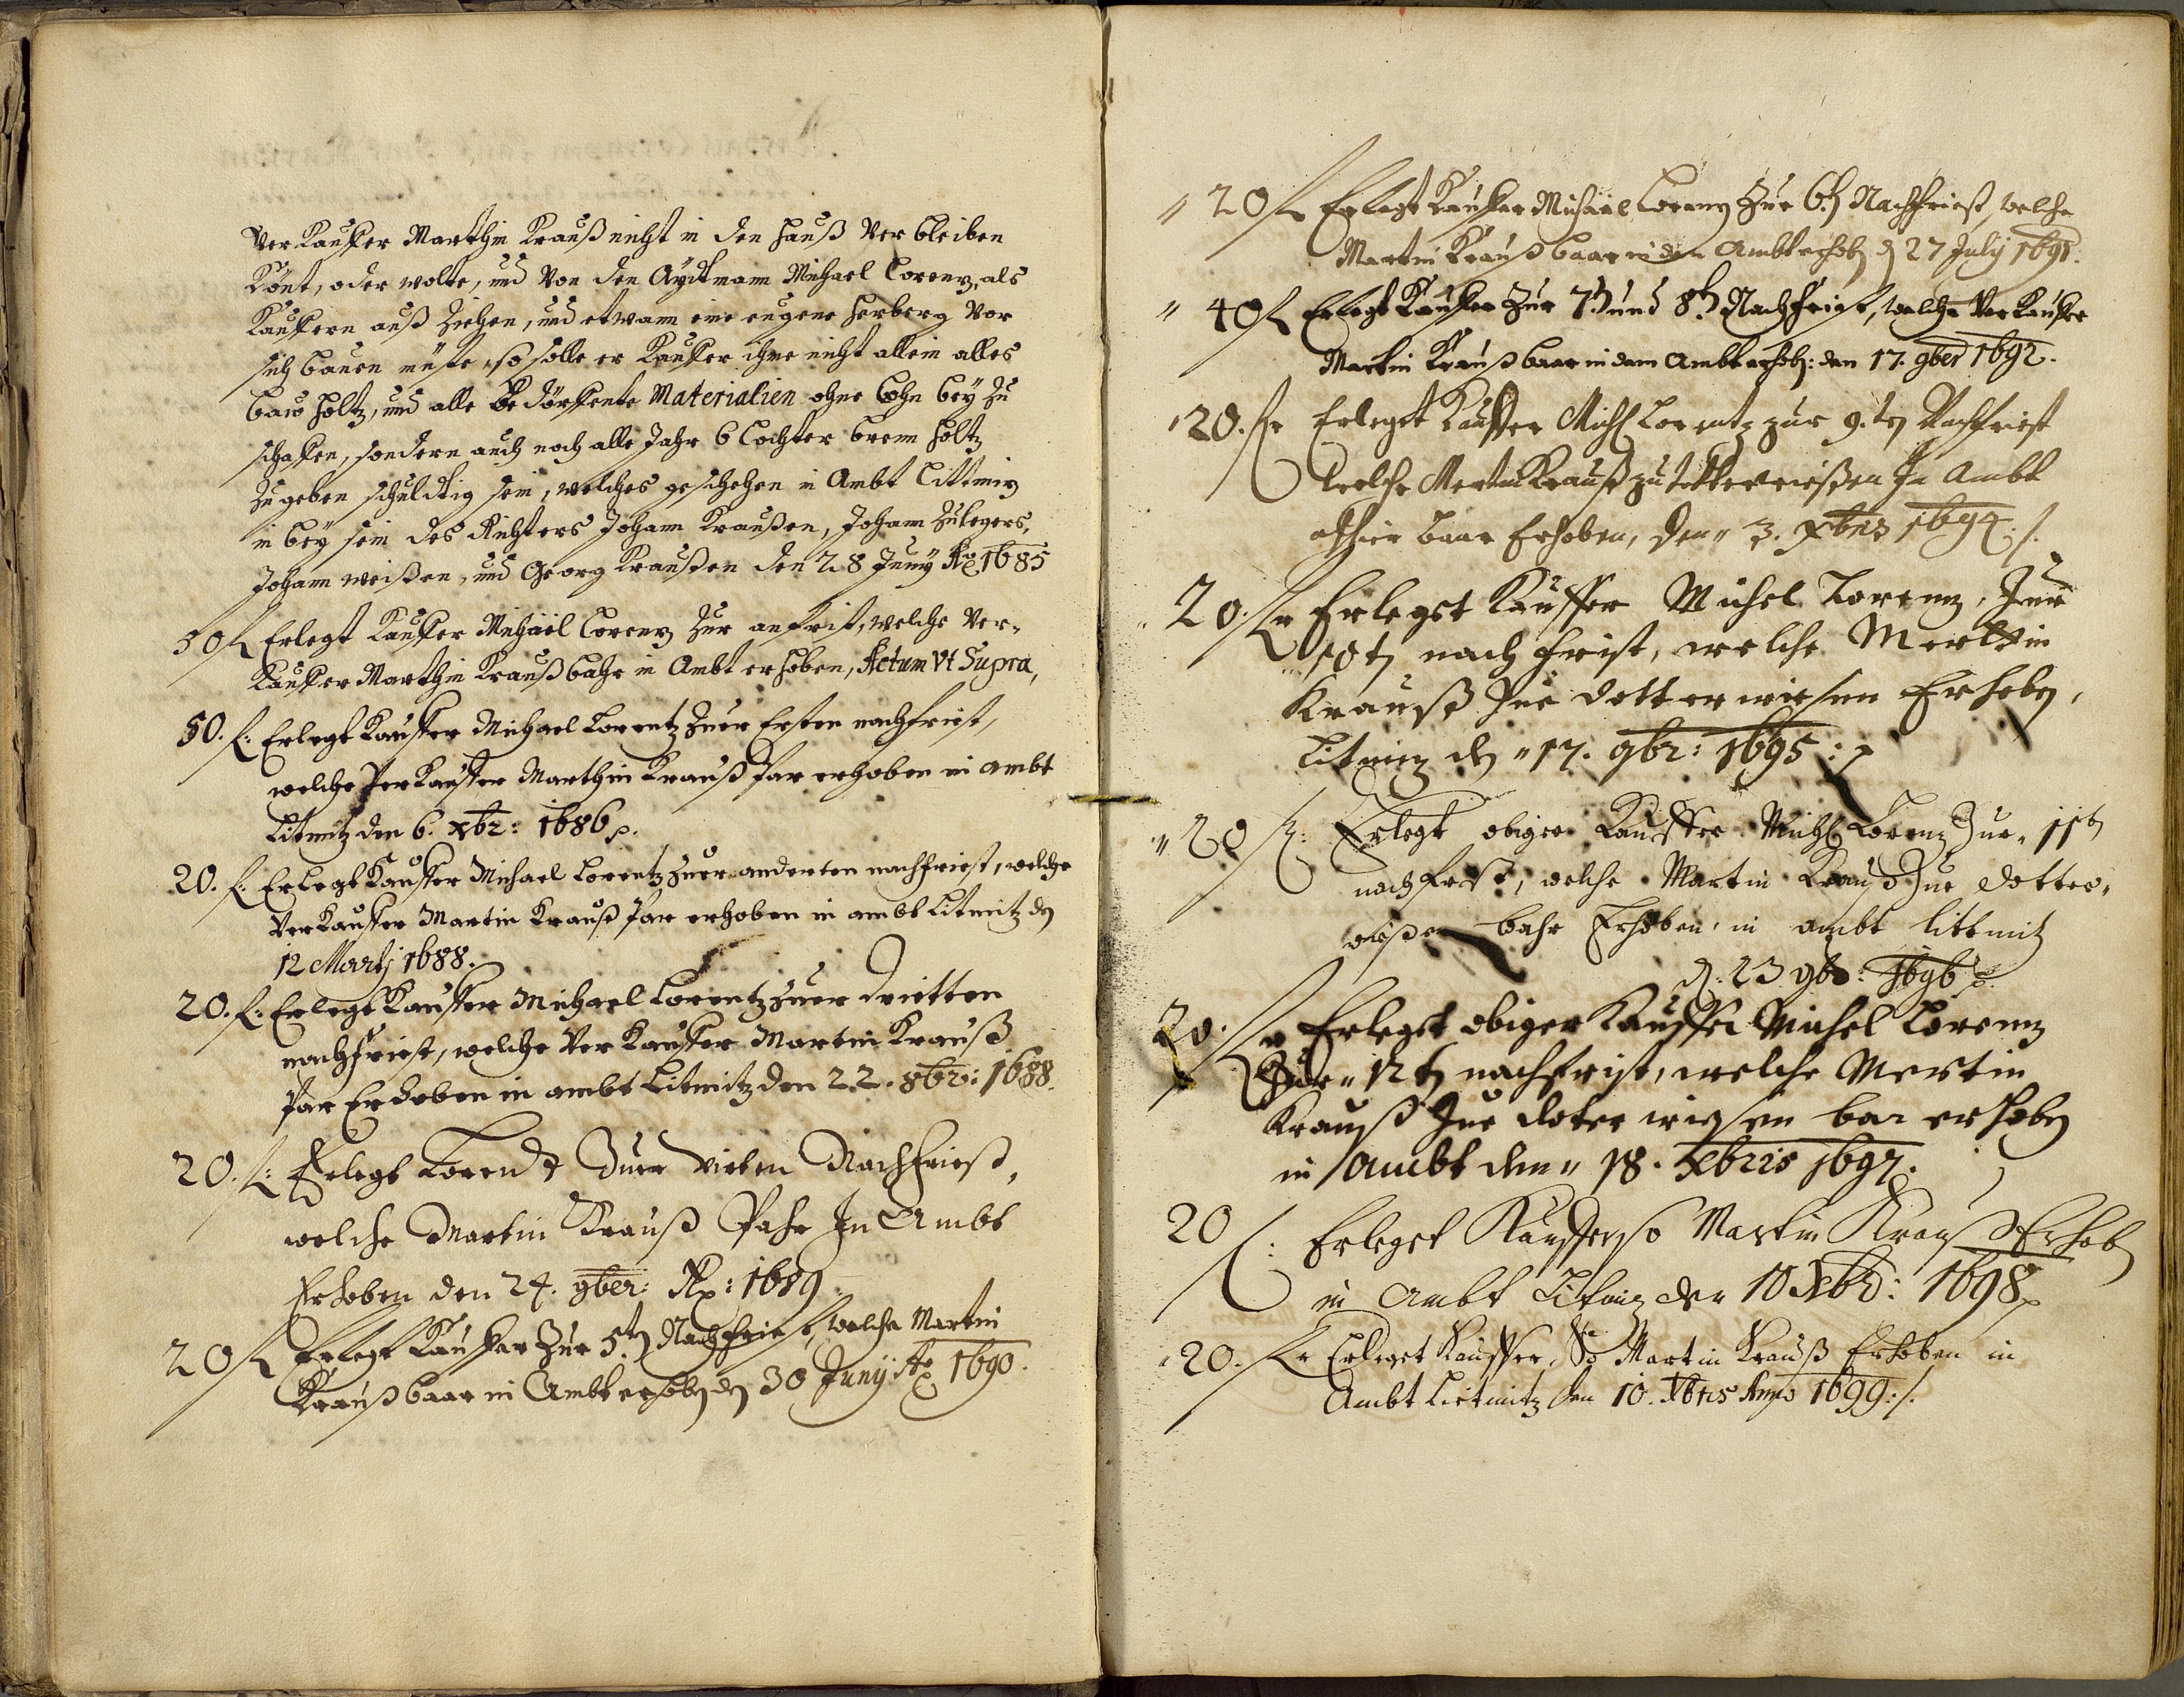 Verkauffer Marthin Krauß nicht in den Hauß Verbleiben
Könt, oder wolte, und von den Aydtmann Michael Lorenz, als
Kauffern auß ziehen, und etwann eine eugene Herberg Vor
sich bauen müste, so solle er Kauffer ihme nicht allein alles
bau holtz, und alle bedörffente Materialien ohne Lohn bey zu
schaffen, sondern auch noch alle Jahr 6 Lachter bren holtz
zu geben schuldtig sein, welches geschehen in Ambt Littmiz
in bey sein des Richters Johann Kraußen, Johann Zulegers,
Johann weißen, und Georg Kraußen den 28 Juny Ao 1685
50 fl Erlegt Kauffer Michael Lorenz zur anfrist, welche Ver-
Kauffer Marthin Krauß bahr in Ambt erhoben, Actum Vt Supra,
50. f: Erlegt Kauffer Michael Lorentz zuer Ersten nachfriest,
welche Verkauffer Marthin Krauß par erhoben in ambt
Litmitz den 6. xbr: 1686 p.
20. f: Erlegt Kauffer Michael Lorentz zuer anderten nachfriest, welche
Verkauffer Martin Krauß par erhoben in ambt Litmitz den
12 Martj 1688.
20. f: Erlegt Kauffer Michael Lorentz zuer dritten
nachfriest, welche Verkauffer Martin Krauß
par Erhoben in ambt Litmitz den 22. 8br: 1688.
20. f: Erlegt Lorendt Zuer Vierten Nachfriest,
welche Martin Krauß Pahr In Ambt
Erhoben den 24. 9ber: Ao: 1689
20 fl Erlegt Kauffer Zur 5.ten Nachfrist, welche Martin
Krauß baar in Ambt erhoben den 30 Juny Ao 1690.
" 20 fl Erlegt Kauffer Michael Lorenz Zur 6.ten Nachfriest, welche
Martin Krauß baar in dem Ambt erhob. den 27 July 1691.
" 40 fl Erlegt Kauffer Zur 7.ten und 8.ten Nachfrist, welche Verkaufer
Martin Krauß baar in dem Ambt erhob: den 17. 9ber 1692.
" 20. fl Erlegt Kauffer Michl Lorentz zur 9.ten Nachfriest
welche Mertin Krauß zu totterwießen In Ambt
alhier baar Erhoben, den " 3. Xbris 1694 /.
" 20. fl Erlegst Kauffer Michel Lorenz, Zur
10 ten nach frist, welche Merttin
Krauß Zue dotterwiesen Erhoben,
Litmiz den " 17. 9br: 1695 : p
" 20 fl: Erlegt obiger Kauffer Michl Lorenz Zur 11ten
nachfrist, welche Martin Krauß Zue dotter-
wißen bahr Erhoben in ambt littmitz
d. 23 9br: 1696 p.
20. fl Erlegst obiger Kauffer Michel Lorenz
Zur " 12 ten nachfrist, welche Mertin
Krauß Zue doterwiesen bar erhoben
in Ambt den " 18. Xbris 1697.
20 f: Erleget Kauffer so Martin Krauß Erhoben
in Ambt Litmiz den 10 Xbr: 1698 p
" 20. fl Erleget Kauffer, So Martin Krauß Erhoben in
Ambt Lietmitz den 10. Xbris Anno 1699 ./.